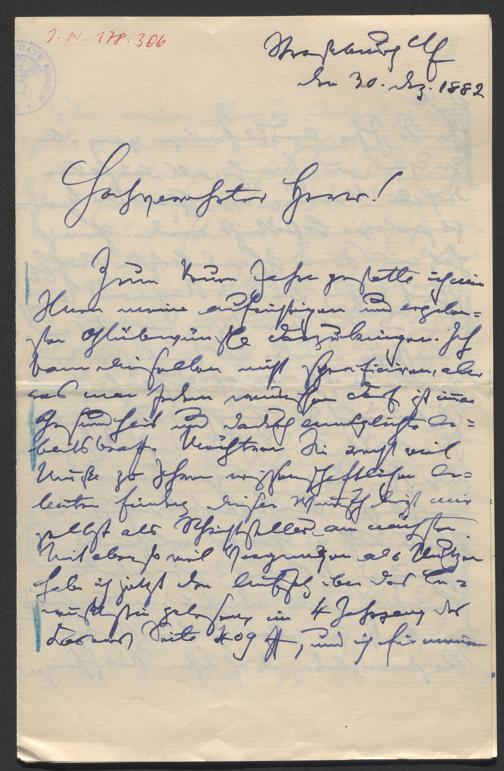 I. N. 178.306
Straßburg i/E
den 30. Dez. 1882
Hochverehrter Herr!
Zum neuen Jahre gestatte ich mir
Ihnen meine aufrichtigen und ergeben-
sten Glückwünsche darzubringen. Ich
kann dieselben nicht spezifiziren, aber
was man jedem wünschen darf ist immer
Gesundheit und dadurch ermöglichte Ar-
beitskraft. Möchten Sie recht viel
Muße zu Ihren wissenschaftlichen Ar-
beiten finden, dieser Wunsch liegt mir
selbst als am nächsten.
Mit ebenso viel Vergnügen als Nutzen
habe ich jetzt den Aufsatz über das
gelesen, im 4 Jahrgang der
Seite 409 ff, und ich für meinen